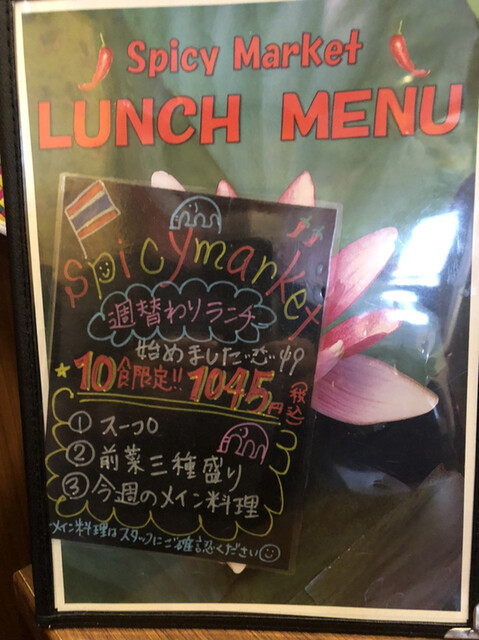 Spicy Market
LUNCH MENU
spicymarket
週替わりランチ
始めました
10食限定!! 1045円(税込)
① スープ
② 前菜三種盛り
③ 今週のメイン料理
メイン料理はスタッフにご確認ください